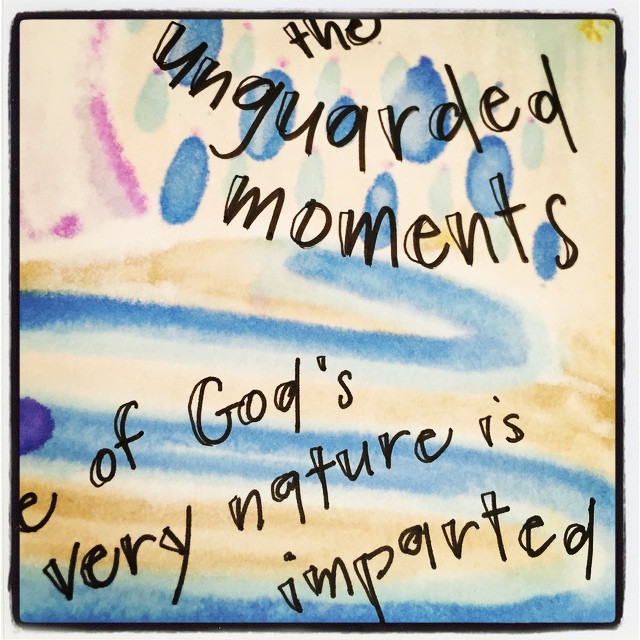 the
unguarded
moments
of God's
very nature is
imparted